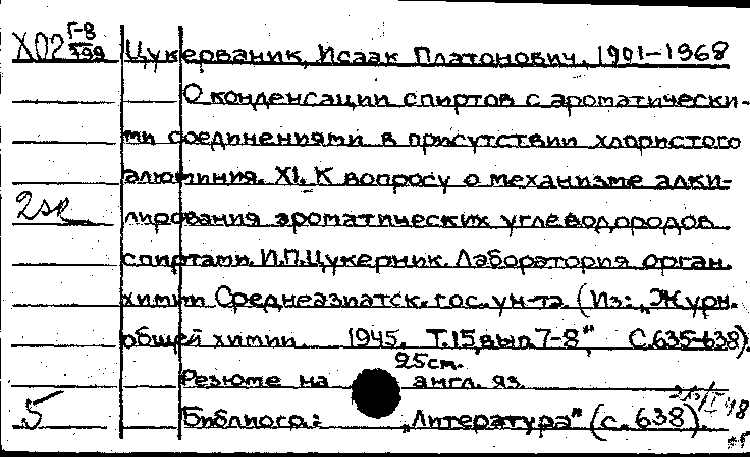 Х02 Г-8 Цукерваник, Исаак Платонович, 1901-1968
799
О конденсации спиртов с ароматически-
ми соединениями в присутствии хлористого
алюминия. XI. К вопросу о механизме алки-
лирования ароматических углеводородов
спиртами. И.П.Цукерник. Лаборатория орган.
химии Среднеазиатск. гос. ун-та. (Из: „Журн.
общей химии 1945. Т.15, вып.7-8", С.635-638).
25 см.
Резюме на англ. яз.
5 Библиогр.: „Литература" (с. 638).